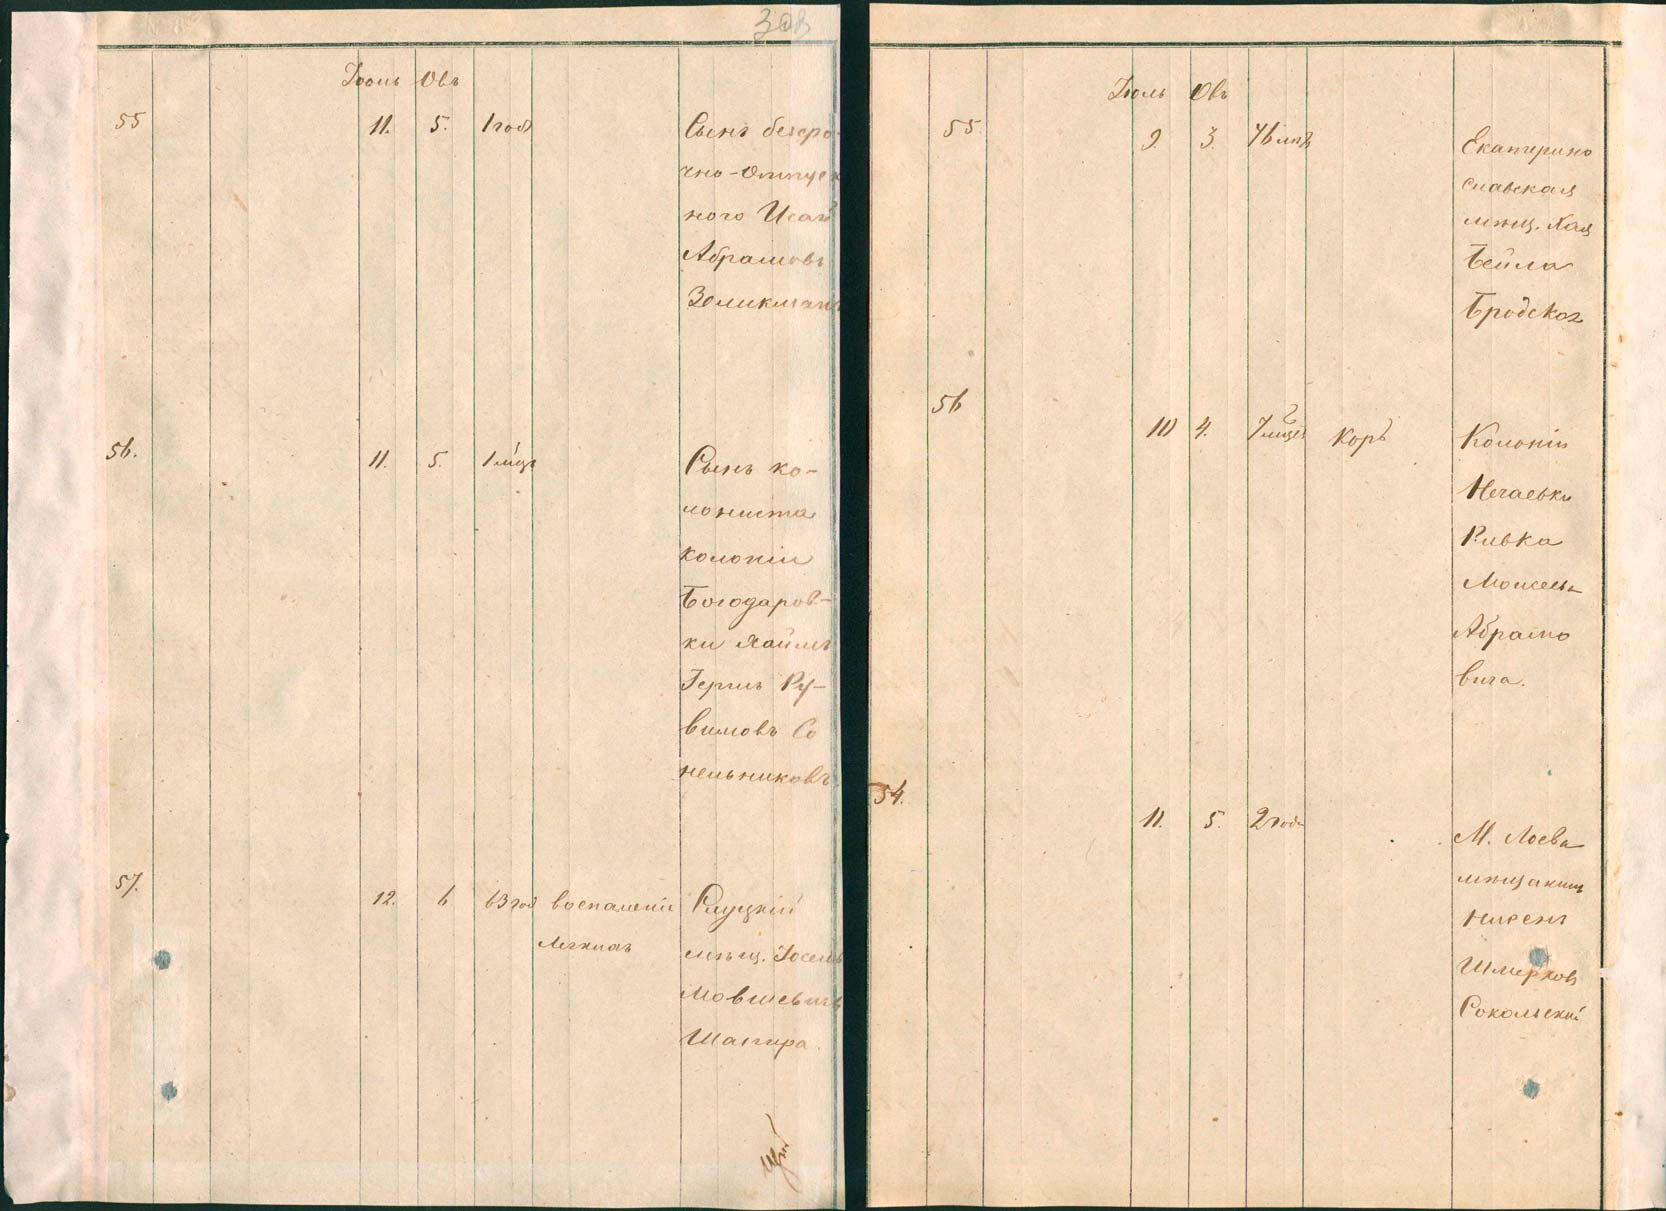 Іюль Овъ
55
11. 5. 1 годъ
Сынъ безсро-
чно-отпуск
ного Исай
Абрамовъ
Зеликманъ
56.
11. 5. 1 мѣсц
Сынъ ко-
лониста
колоніи
Богодаров-
ки Хаимъ
Гершъ Ру-
вимовъ Со
нельниковъ
57.
12. 6 63 год воспаленіе
легкихъ
Слуцкій
мѣщ. Іосель
Мовшевичъ
Шапира.
Іюль Овъ
55.
9. 3. 76 лѣтъ
Екатерино
славская
мѣщ. Хая
Бейла
Бродская
56
10 4. 7 мѣсц корь
Колоніи
Нечаевки
Ривка
Моисеева
Абрамо
вича.
54.
11. 5. 2 года
М. Лоева
мѣщанинъ
Нисенъ
Шмерковъ
Сокольскій